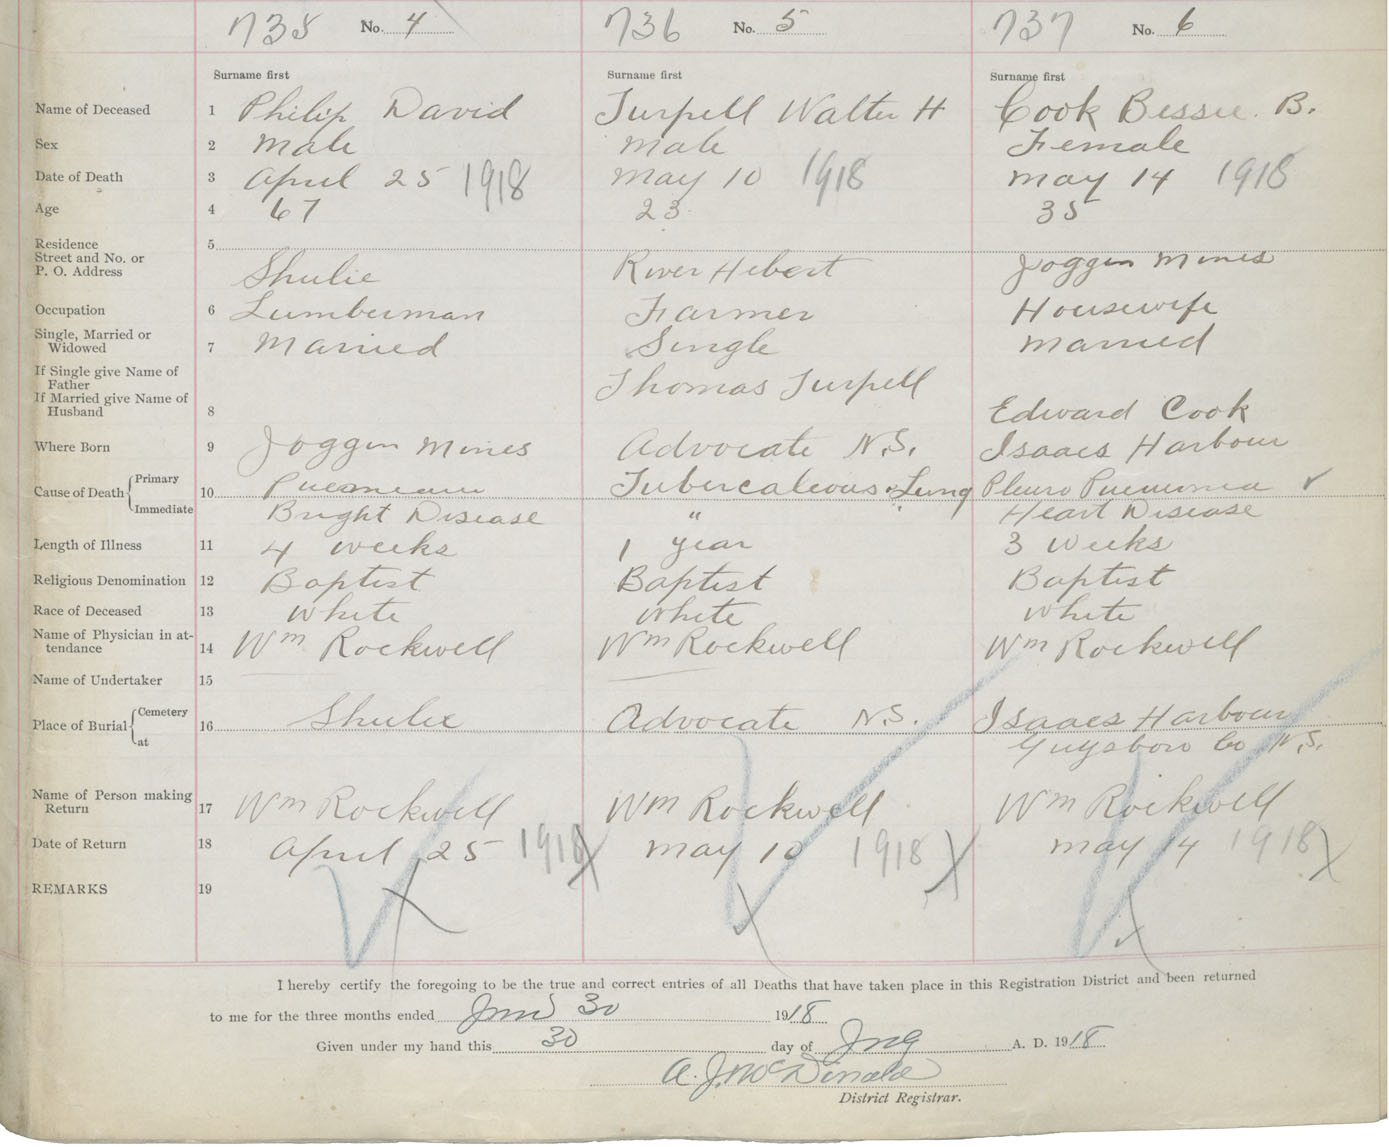 735 No. 4 736 No. 5 737 No. 6
Surname first Surname first Surname first
Name of Deceased 1 Philip David Turpell Walter H Cook Bessie. B.
Sex 2 Male Male Female
Date of Death 3 April 25 1918 May 10 1918 May 14 1918
Age 4 67 23 35
Residence 5
Street and No. or
P. O. Address Shulie River Hebert Joggin Mines
Occupation 6 Lumberman Farmer Housewife
Single, Married or
Widowed 7 Married Single Married
If Single give Name of
Father Thomas Turpell
If Married give Name of
Husband 8 Edward Cook
Where Born 9 Joggin Mines Advocate N.S. Isaacs Harbour
Cause of Death Primary 10 Tubercaleous Lung Pleuro Pneumonia ✓
Immediate Bright Disease " " Heart Disease
Length of Illness 11 4 weeks 1 year 3 weeks
Religious Denomination 12 Baptist Baptist Baptist
Race of Deceased 13 White White White
Name of Physician in at-
tendance 14 Wm Rockwell Wm Rockwell Wm Rockwell
Name of Undertaker 15
Place of Burial Cemetery 16 Shulie Advocate N.S. Isaacs Harbour
at Guysboro Co N.S.
Name of Person making
Return 17 Wm Rockwell Wm Rockwell Wm Rockwell
Date of Return 18 April 25 1918 May 10 1918 May 14 1918
REMARKS 19
I hereby certify the foregoing to be the true and correct entries of all Deaths that have taken place in this Registration District and been returned
to me for the three months ended June 30 1918
Given under my hand this 30 day of A. D. 1918
A. J. McDonald
District Registrar.